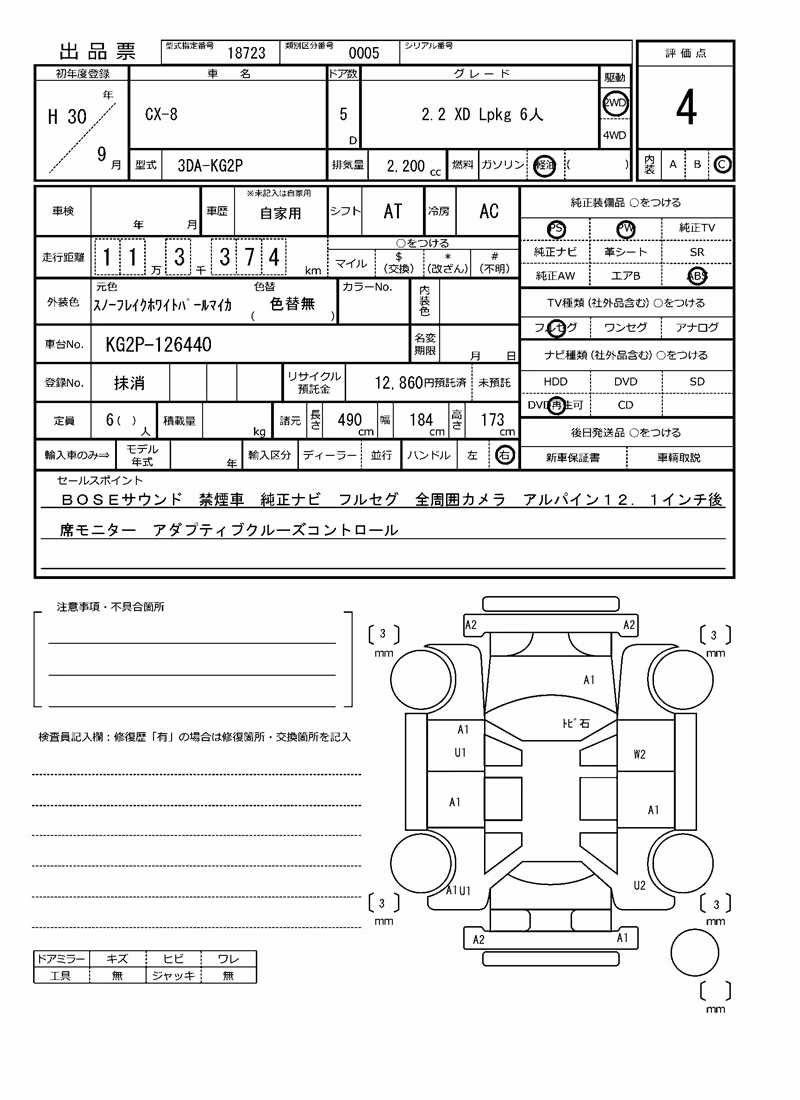 出品票 型式指定番号 18723 類別区分番号 0005 シリアル番号
評価点
4
内装 A B C
初年度登録 車名 ドア数 グレード 駆動
H 30 年 9 月 CX-8 5 D 2.2 XD Lpkg 6人 2WD
4WD
型式 3DA-KG2P 排気量 2,200 cc 燃料 ガソリン 軽油 ( )
車検 年 月 車歴 ※未記入は自家用 自家用 シフト AT 冷房 AC
走行距離 1 1 万 3 千 3 7 4 km ○をつける
マイル $(交換) *(改ざん) #(不明)
外装色 元色 スノーフレイクホワイトパールマイカ 色替 ( 色替無 ) カラーNo. 内装色
車台No. KG2P-126440 名変期限 月 日
登録No. 抹消 リサイクル預託金 12,860円預託済 未預託
定員 6( )人 積載量 kg 諸元 長さ 490 cm 幅 184 cm 高さ 173 cm
輸入車のみ⇒ モデル年式 年 輸入区分 ディーラー 並行 ハンドル 左 右
純正装備品 ○をつける
PS PW 純正TV
純正ナビ 革シート SR
純正AW エアB ABS
TV種類(社外品含む)○をつける
フルセグ ワンセグ アナログ
ナビ種類(社外品含む)○をつける
HDD DVD SD
DVD再生可 CD
後日発送品 ○をつける
新車保証書 車輌取説
セールスポイント
BOSEサウンド 禁煙車 純正ナビ フルセグ 全周囲カメラ アルパイン12.1インチ後
席モニター アダプティブクルーズコントロール
注意事項・不具合箇所
検査員記入欄:修復歴「有」の場合は修復箇所・交換箇所を記入
ドアミラー キズ ヒビ ワレ
工具 無 ジャッキ 無
A2 A2
3 mm 3 mm
A1
トビ石
A1
U1 W2
A1 A1
A1U1 U2
3 mm 3 mm
A2 A1
mm